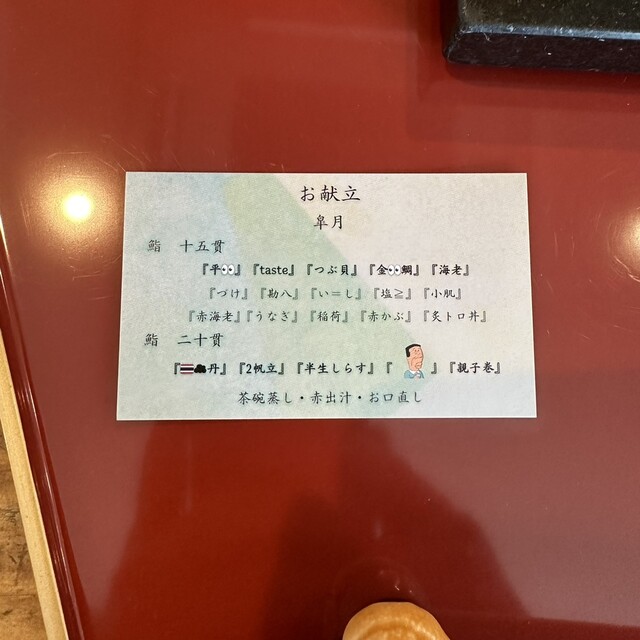 お献立
皐月
鮨 十五貫
『平👀』『taste』『つぶ貝』『金👀鯛』『海老』
『づけ』『勘八』『い＝し』『塩≧』『小肌』
『赤海老』『うなぎ』『稲荷』『赤かぶ』『炙トロ丼』
鮨 二十貫
『丹』『2帆立』『半生しらす』『 』『親子巻』
茶碗蒸し・赤出汁・お口直し